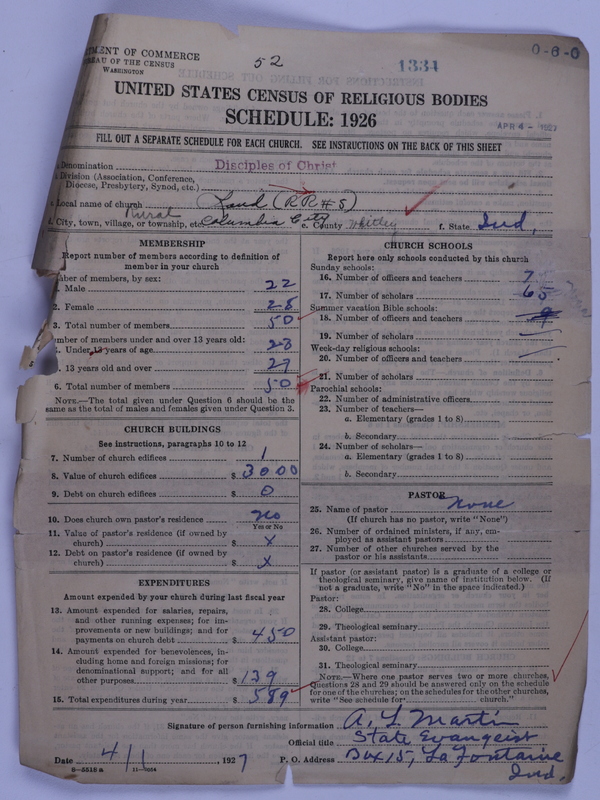 TMENT OF COMMERCE
EAU OF THE CENSUS
WASHINGTON
52
1334
0-6-0
UNITED STATES CENSUS OF RELIGIOUS BODIES
SCHEDULE: 1926
APR 4 - 1927
FILL OUT A SEPARATE SCHEDULE FOR EACH CHURCH. SEE INSTRUCTIONS ON THE BACK OF THIS SHEET
Denomination Disciples of Christ
Division (Association, Conference,
Diocese, Presbytery, Synod, etc.)
Local name of church (RR#8)
Rural
City, town, village, or township, etc. Columbia City e. County Whitley f. State Ind.
MEMBERSHIP
Report number of members according to definition of
member in your church
ber of members, by sex:
1. Male 22
2. Female 28
3. Total number of members 50
mber of members under and over 13 years old:
Under 13 years of age
5. 13 years old and over 27
6. Total number of members 50
NOTE.—The total given under Question 6 should be the
same as the total of males and females given under Question 3.
CHURCH BUILDINGS
See instructions, paragraphs 10 to 12
7. Number of church edifices 1
8. Value of church edifices $ 3000
9. Debt on church edifices $ 0
10. Does church own pastor's residence No
Yes or No
11. Value of pastor's residence (if owned by
church) $ X
12. Debt on pastor's residence (if owned by
church) $ X
EXPENDITURES
Amount expended by your church during last fiscal year
13. Amount expended for salaries, repairs,
and other running expenses; for im-
provements or new buildings; and for
payments on church debt $ 450
14. Amount expended for benevolences, in-
cluding home and foreign missions; for
denominational support; and for all
other purposes $ 139
15. Total expenditures during year $ 589
CHURCH SCHOOLS
Report here only schools conducted by this church
Sunday schools:
16. Number of officers and teachers 7
17. Number of scholars 65
Summer vacation Bible schools:
18. Number of officers and teachers
19. Number of scholars
Week-day religious schools:
20. Number of officers and teachers
21. Number of scholars
Parochial schools:
22. Number of administrative officers
23. Number of teachers—
a. Elementary (grades 1 to 8)
b. Secondary
24. Number of scholars—
a. Elementary (grades 1 to 8)
b. Secondary
PASTOR
25. Name of pastor None
(If church has no pastor, write "None")
26. Number of ordained ministers, if any, em-
ployed as assistant pastors
27. Number of other churches served by the
pastor or his assistants
If pastor (or assistant pastor) is a graduate of a college or
theological seminary, give name of institution below. (If
not a graduate, write "No" in the space indicated.)
Pastor:
28. College
29. Theological seminary
Assistant pastor:
30. College
31. Theological seminary
NOTE.—Where one pastor serves two or more churches,
Questions 28 and 29 should be answered only on the schedule
for one of the churches; on the schedules for the other churches,
write "See schedule for church."
Signature of person furnishing information A. L. Martin
Official title State Evangelist
Date 4/1, 1927 P. O. Address Box 15, La Fontaine
Ind.
8-5518a 11-9054